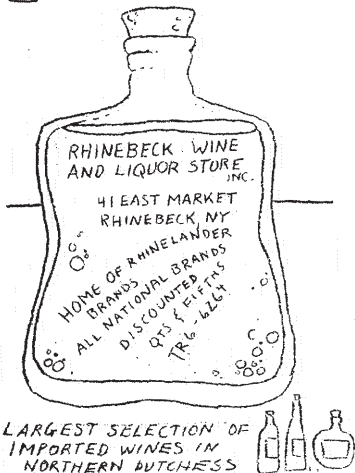 RHINEBECK WINE
AND LIQUOR STORE
INC.
41 EAST MARKET
RHINEBECK, NY
HOME OF RHINELANDER
BRANDS
ALL NATIONAL BRANDS
DISCOUNTED
QTS & FIFTHS
TR6-6264
LARGEST SELECTION OF
IMPORTED WINES IN
NORTHERN DUTCHESS